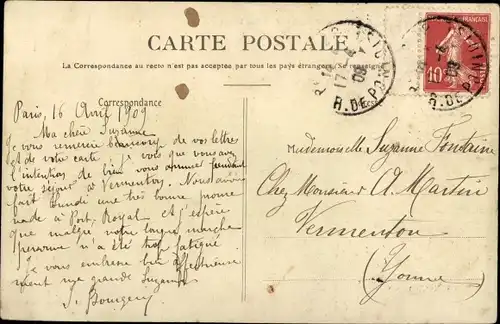 CARTE POSTALE
La Correspondance au recto n'est pas acceptée par tous les pays étrangers (Se renseigner
Correspondance
Paris, 16 Avril 1909
Ma chère Suzanne
Je vous remercie beaucoup de vos lettres
et de votre carte. Je vois que vous avez
l'intention de bien vous amuser pendant
votre séjour à Vermenton. Nous avons
fait lundi une très bonne prome
nade à Port Royal et j'espère
que malgré votre longue marche
personne n'a été trop fatigué
Je vous embrasse bien affectueuse
ment ma grande Suzanne
Mademoiselle Suzanne Fontaine
Chez Monsieur A. Martin
Vermenton
(Yonne)
R. DE
10